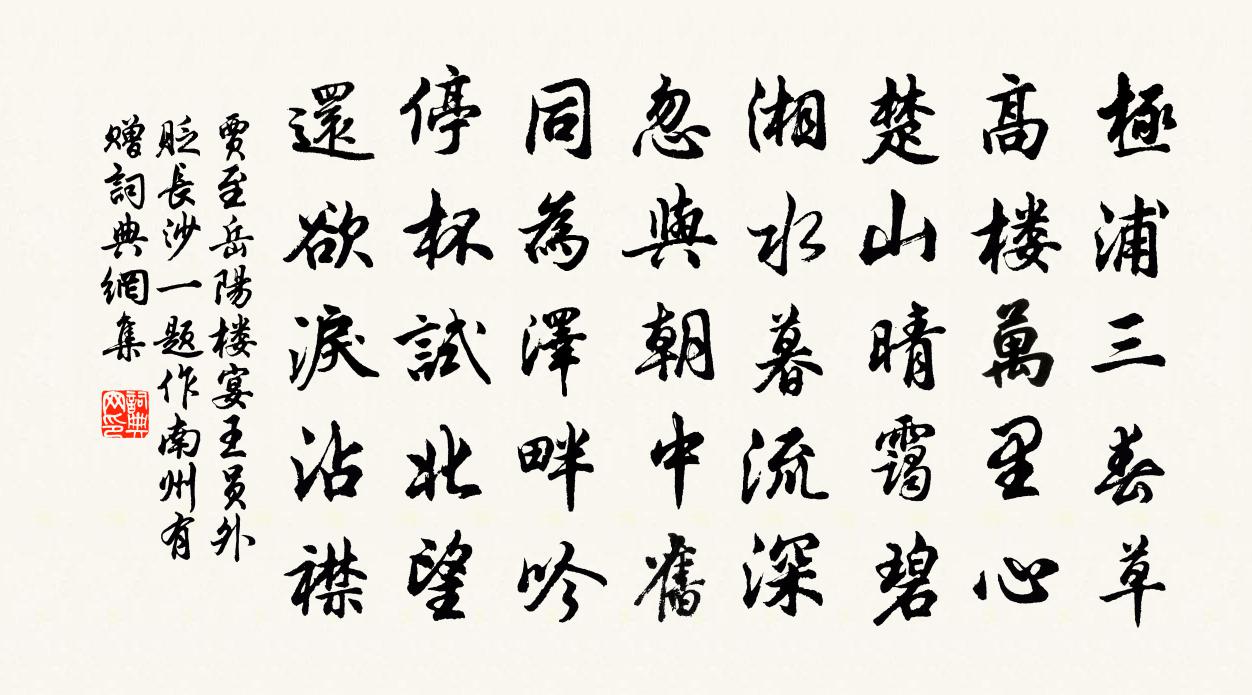 極浦三春草
高楼萬里心
楚山晴靄碧
湘水暮流深
忽與朝中舊
同為澤畔吟
停杯試北望
還欲淚沾襟
賈至岳陽楼宴王員外
貶長沙一题作南州有
赠詞典網集
詞典网印